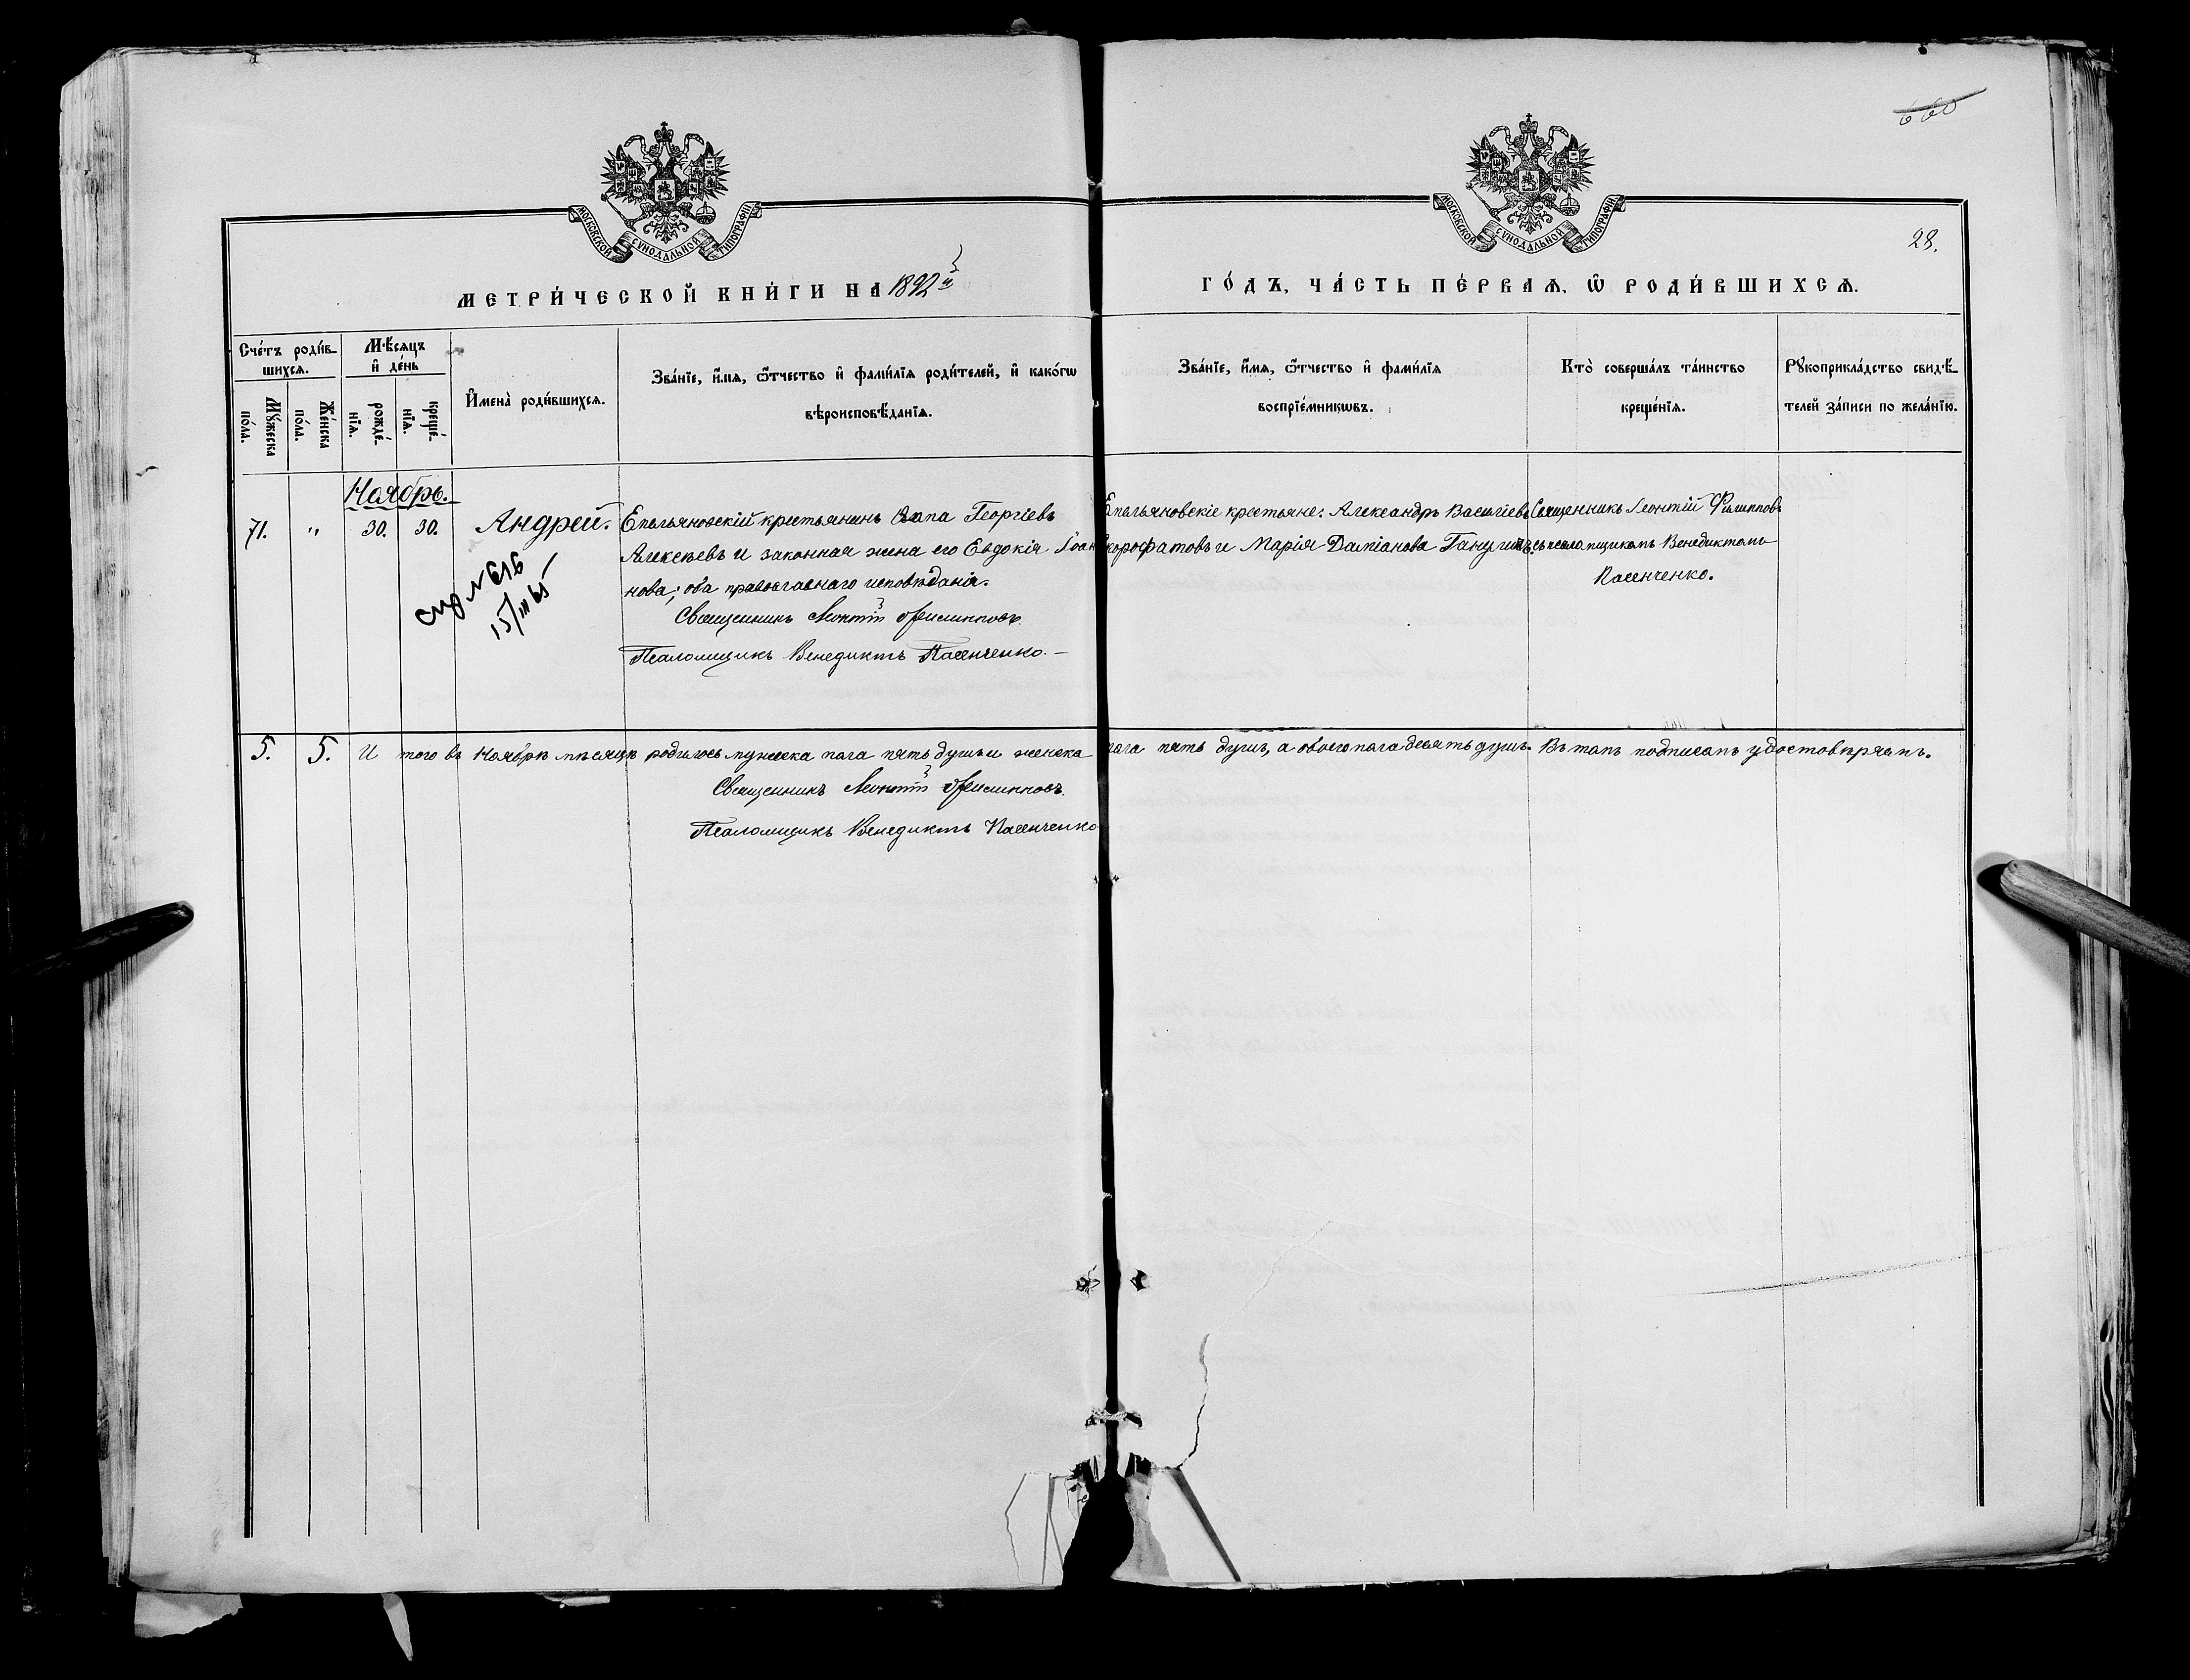 660
МОСКОВСКОЙ СѴНОДАЛЬНОЙ ТИПОГРАФІИ
МОСКОВСКОЙ СѴНОДАЛЬНОЙ ТИПОГРАФІИ
28.
МЕТРИ́ЧЕСКОЙ КНИ́ГИ НА 1892й
ГО́ДЪ, ЧА́СТЬ ПЕ́РВАѦ, Ѡ҆ РОДИ́ВШИХСѦ.
Сче́тъ роди́в-
шихсѧ.
Мѣ́сѧцъ
и҆ де́нь
Мꙋ́жеска по́ла.
Же́нска по́ла.
рожде́-нїѧ.
креще́-нїѧ.
И҆мена̀ роди́вшихсѧ.
Зва́нїе, и҆́мѧ, ѻ҆́тчество и҆ фами́лїѧ роди́телей, и҆ како́гѡ
вѣроисповѣ́данїѧ.
Зва́нїе, и҆́мѧ, ѻ҆́тчество и҆ фами́лїѧ
воспрїе́мникѡвъ.
Кто̀ соверша́лъ та́инство
креще́нїѧ.
Рꙋкоприкла́дство свидѣ́-
телей за́писи по жела́нїю.
Ноябрь.
71. " 30. 30. Андрей. Емельяновскій крестьянинъ Георгіевъ
Алексѣевъ и законная жена его Евдокія Іоан
нова; оба православнаго исповѣданія.
Священникъ Леонтій Филипповъ.
Псаломщикъ Венедиктъ Пасенченко.
Емельяновскіе крестьяне: Александръ Васильевъ
и Марія Даміанова
Священникъ Леонтій Филипповъ
съ псаломщикомъ Венедиктомъ
Пасенченко.
№ 616
15/III 65
5. 5. И того въ Ноябрѣ мѣсяцѣ родилось мужеска пола пять душъ и женска пола пять душъ, а обоего пола десять душъ. Въ томъ подписомъ удостовѣряемъ.
Священникъ Леонтій Филипповъ.
Псаломщикъ Венедиктъ Пасенченко